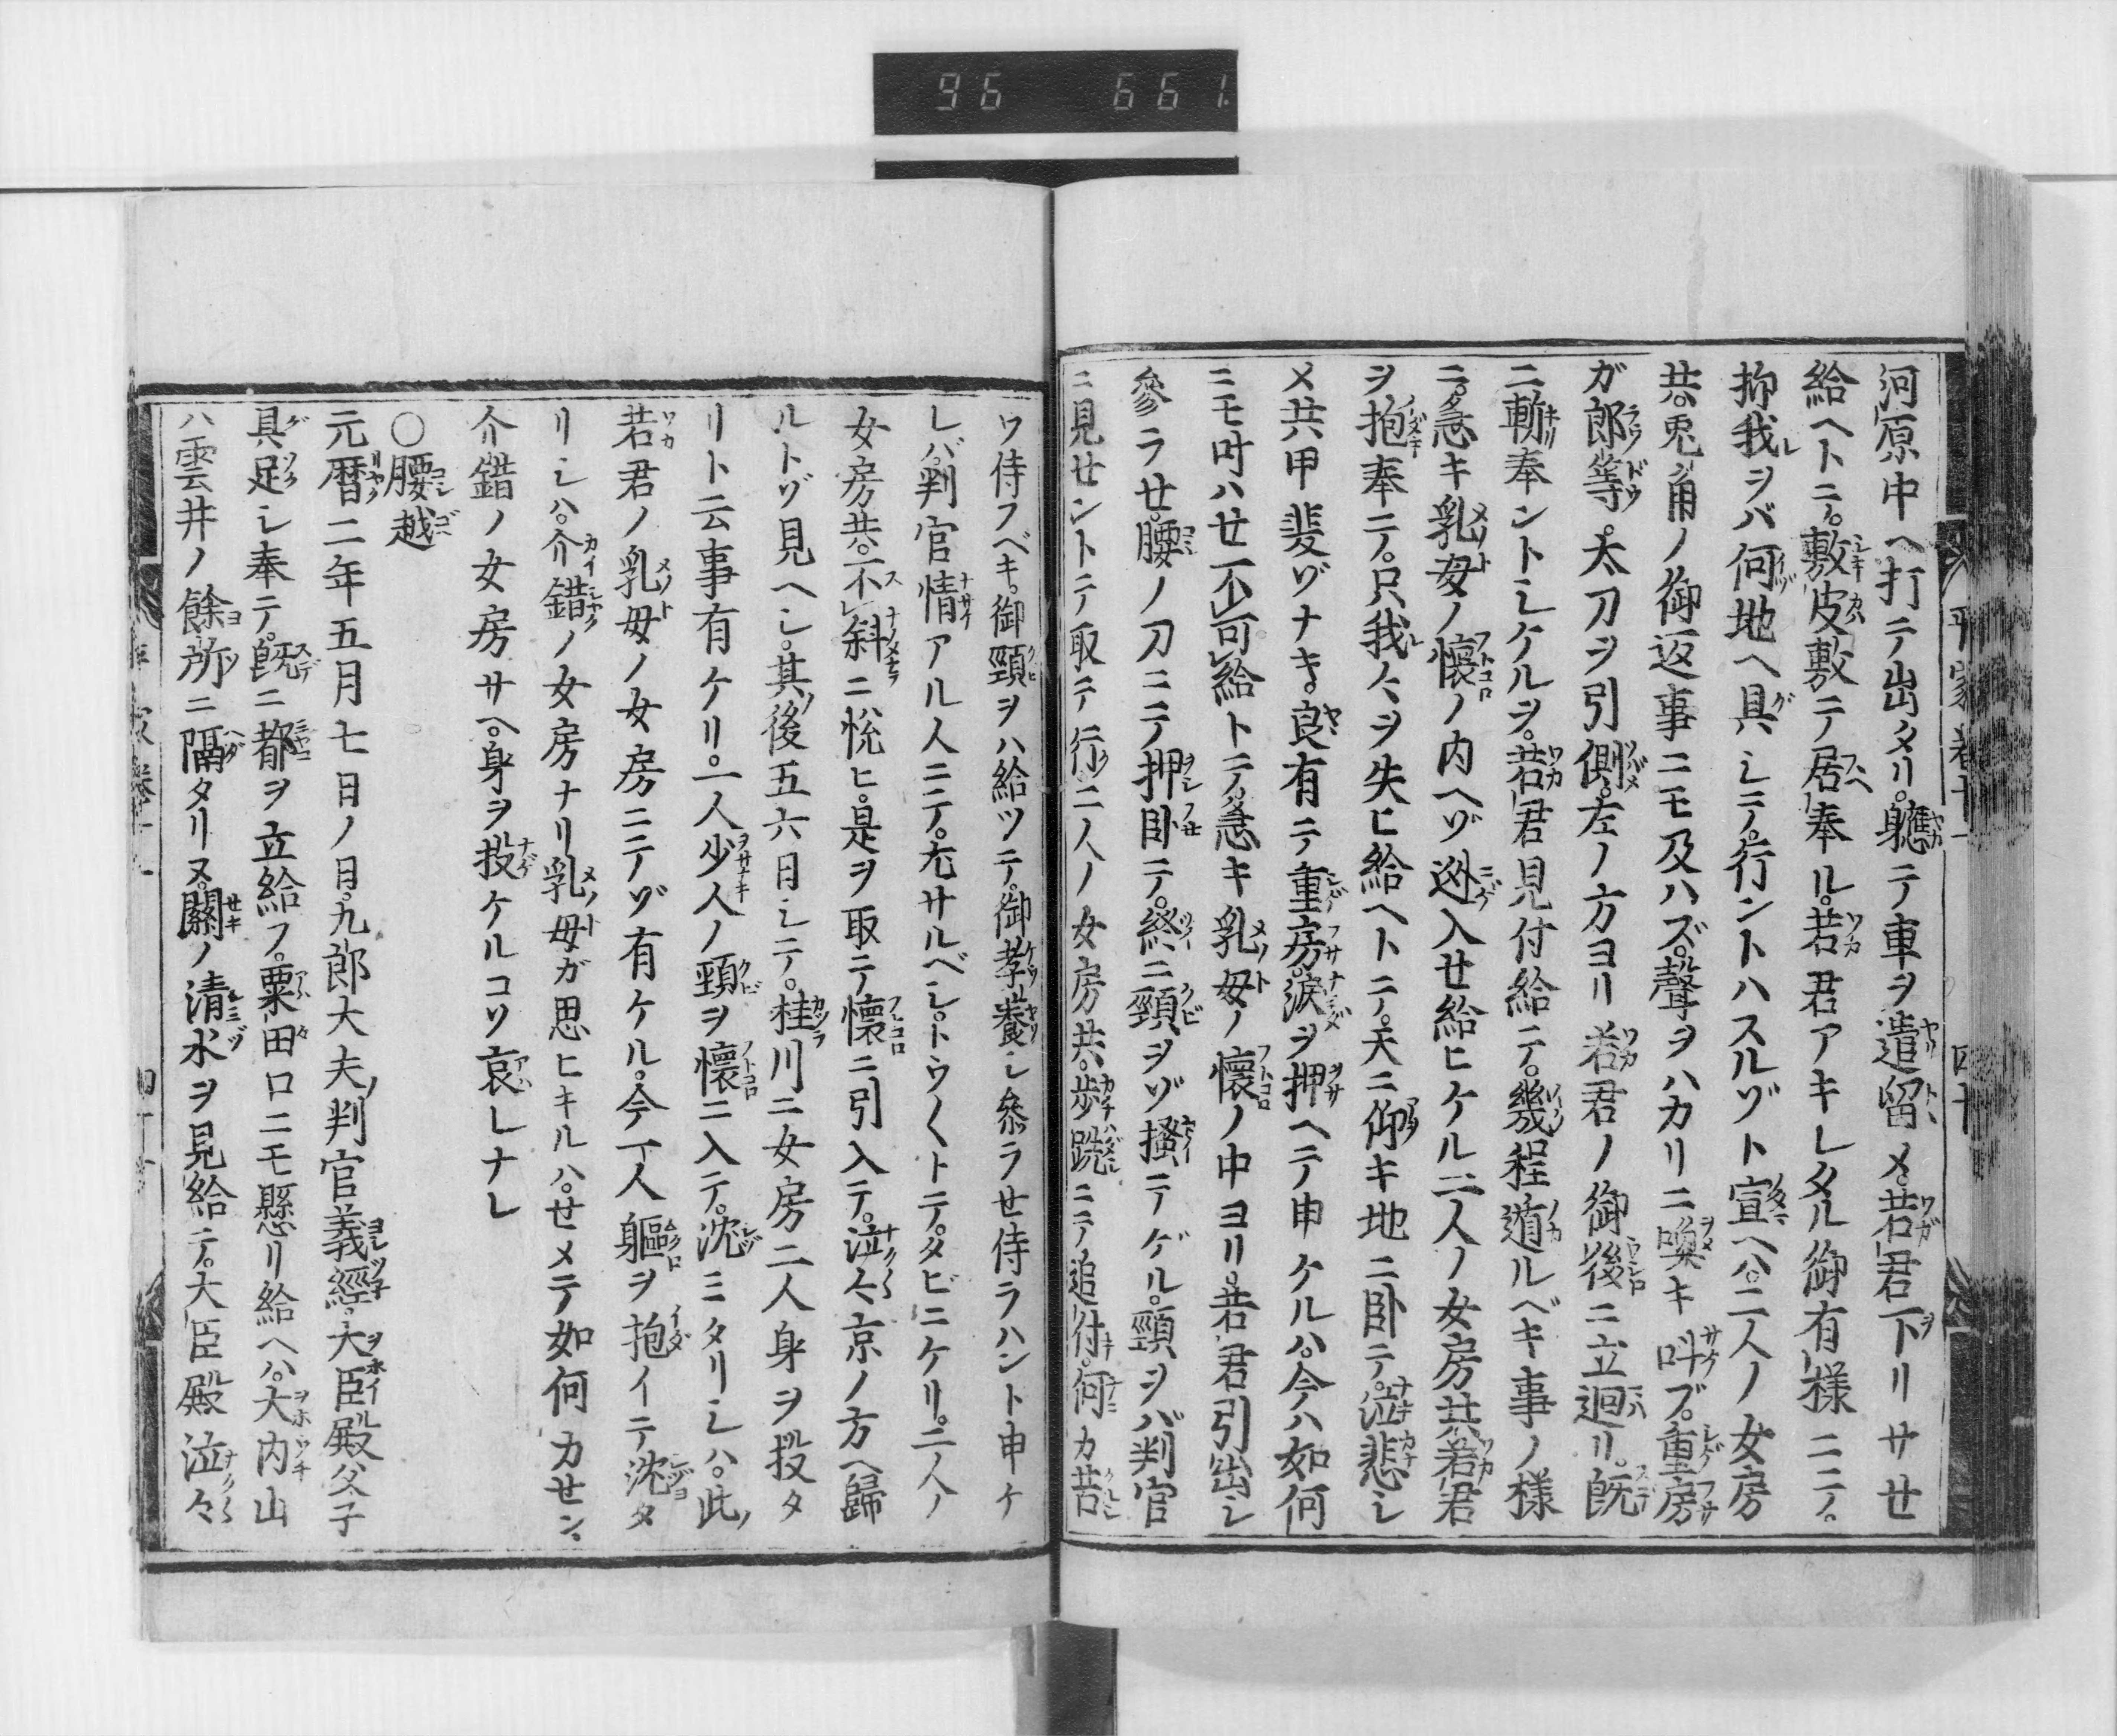 96 661
河原中ヘ打テ出タリ。軈テ車ヲ遣留メ。若君下リサせ
給ヘトニテ。敷皮敷テ居奉ル。若君アキレタル御有様ニテ。
抑我ヲバ何地ヘ具シテ。行ントハスルゾト宣ヘハ。二人ノ女房
共。兎角ノ御返事ニモ及ハズ。聲ヲハカリニ喚キ叫ブ。重房
ガ郎等。太刀ヲ引側メ。左ノ方ヨリ若君ノ御後ニ立廻リ。既
ニ斬奉ントシケルヲ。若君見付給テ。幾程遁ルベキ事ノ様
ニ。急キ乳母ノ懷ノ内ヘゾ迯入せ給ヒケル二人ノ女房共若君
ヲ抱奉テ。只我々ヲ失ヒ給ヘトテ。天ニ仰キ地ニ卧テ。泣悲シ
メ共甲斐ゾナキ。良有テ重房。涙ヲ押ヘテ申ケルハ。今ハ如何
ニモ叶ハせ不可給トテ。急キ乳母ノ懷ノ中ヨリ。若君引出シ
參ラせ。腰ノ刀ニテ押卧テ。終ニ頸ヲゾ搔テゲル。頸ヲバ判官
ニ見せントテ取テ行。二人ノ女房共。歩跣ニテ追付。何カ苦
ウ侍フベキ。御頸ヲハ給ツテ。御孝養シ參ラせ侍ラハント申ケ
レバ。判官情アル人ニテ。尤サルベシ。トウ〱トテ。タビニケリ。二人ノ
女房共。不斜ニ悦ヒ。是ヲ取テ懷ニ引入テ。泣々京ノ方ヘ歸
ルトゾ見ヘシ。其後五六日シテ。桂川ニ女房二人身ヲ投タ
リト云事有ケリ。一人少人ノ頸ヲ懷ニ入テ。沈ミタリシハ。此
若君ノ乳母ノ女房ニテゾ有ケル。今一人軀ヲ抱イテ沈タ
リシハ。介錯ノ女房ナリ乳母ガ思ヒキルハ。せメテ如何カせン。
介錯ノ女房サヘ。身ヲ投ケルコソ哀レナレ
○腰越
元暦二年五月七日ノ日。九郎大夫判官義經。大臣殿父子
具足シ奉テ。既ニ都ヲ立給フ。粟田口ニモ懸リ給ヘハ。大内山
ハ雲井ノ餘所ニ隔タリヌ。關ノ清水ヲ見給テ。大臣殿泣々